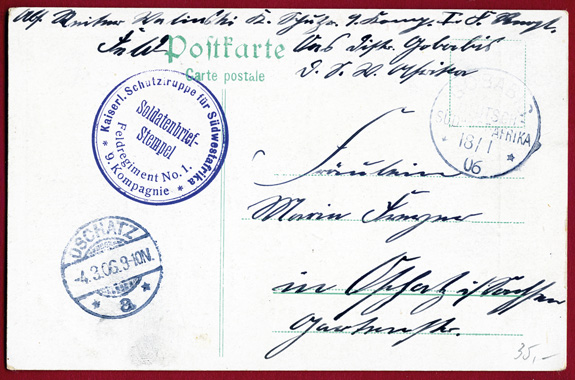 Abs. Reiter Walinski K. Schutztr. 9. Komp. I. F. Regt.
Postkarte
Carte postale
Ons Distr. Gobabis
D. S. W. Afrika
Kaiserl. Schutztruppe für Südwestafrika
Soldatenbrief-
Stempel
Feldregiment No. 1.
* 9. Kompagnie *
AFRIKA
18/1
06
Fräulein
Marie
in Oschatz i/Sachsen
Gartenstr.
OSCHATZ
-4.3.06.9-10N.
* a *
35,-